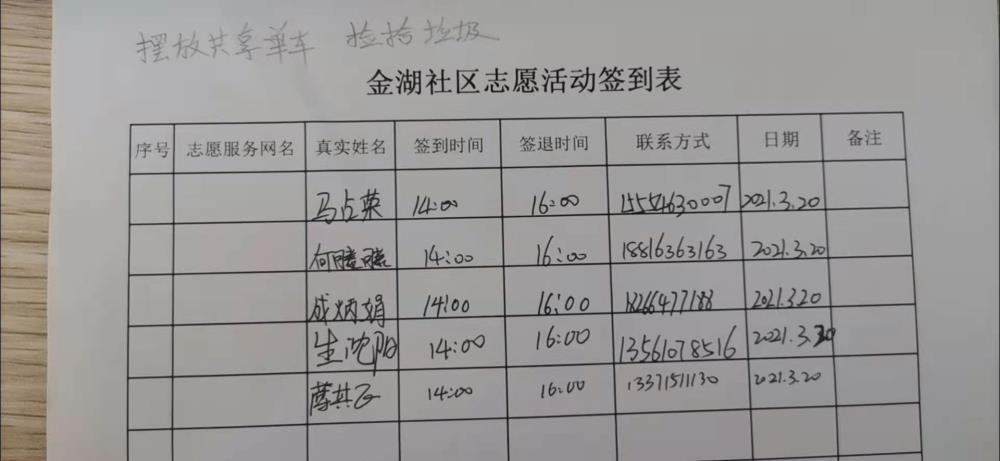 摆放共享单车 捡拾垃圾
金湖社区志愿活动签到表
序号 志愿服务网名 真实姓名 签到时间 签退时间 联系方式 日期 备注
马占荣 14:00 16:00 15554630007 2021.3.20
何 14:00 16:00 18816363163 2021.3.20
成炳娟 14:00 16:00 18266477188 2021.3.20
生沈阳 14:00 16:00 13561078516 2021.3.20
14:00 16:00 13371511130 2021.3.20